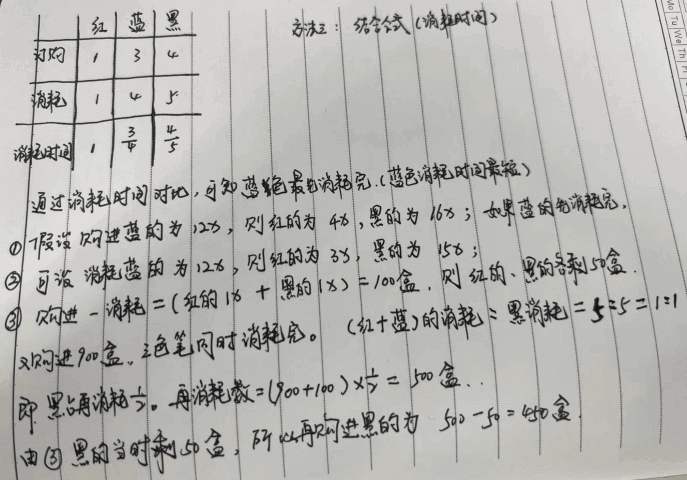 红 蓝 黑
方法二：结合公式（消耗时间）
订购 1 3 4
消耗 1 4 5
消耗时间 1 3/4 4/5
通过消耗时间对比，可知蓝色最先消耗完.（蓝色消耗时间最短）
① 假设购进蓝的为12x，则红的为4x，黑的为16x；如果蓝的先消耗完，
② 可设消耗蓝的为12x，则红的为3x，黑的为15x；
③ 购进-消耗=(红的1x+黑的1x)=100盒，则红的、黑的各剩50盒.
又购进900盒，三色笔同时消耗完。（红+蓝）的消耗：黑消耗=5:5=1:1
即黑占再消耗1/2。再消耗数=(900+100)×1/2=500盒..
由③黑的当时剩50盒，所以再购进黑的为 500-50=450盒.
Mo Tu We Th Fr